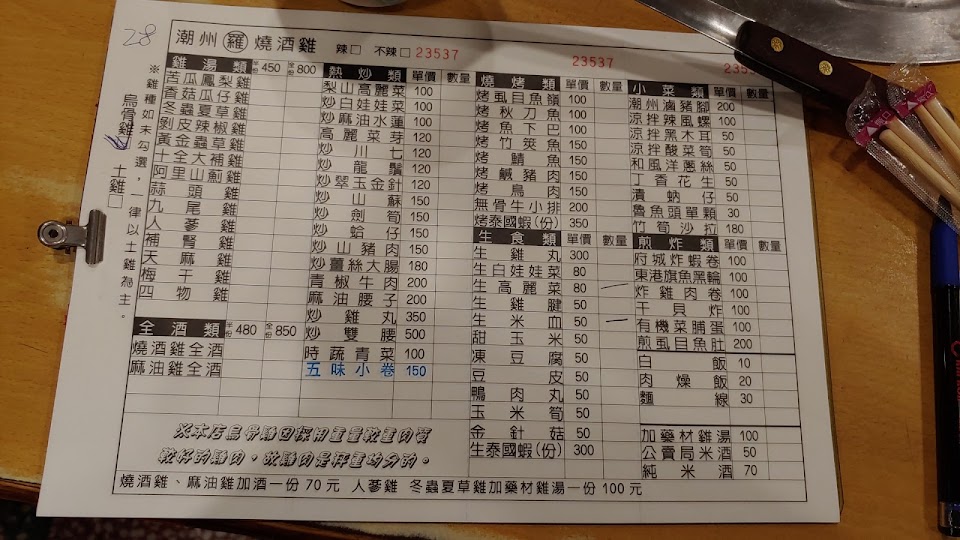 28
潮州羅燒酒雞 辣□ 不辣□ 23537
23537
※雞種如未勾選，一律以土雞為主。
烏骨雞 土雞□
雞湯類 半份450 全份800
苦瓜鳳梨雞
香菇瓜仔雞
冬蟲夏草雞
剝皮辣椒雞
黃金蟲草雞
十全大補雞
阿里山薊雞
蒜頭雞
九尾雞
人蔘雞
補腎雞
天麻雞
梅干雞
四物雞
全酒類 半份480 全份850
燒酒雞全酒
麻油雞全酒
熱炒類 單價 數量
梨山高麗菜 100
炒白娃娃菜 100
炒麻油水蓮 100
高麗菜芽 120
炒川七 120
炒龍鬚 120
炒翠玉金針 120
炒山蘇 150
炒劍筍 150
炒蛤仔 150
炒山豬肉 150
炒薑絲大腸 180
青椒牛肉 200
麻油腰子 200
炒雞丸 350
炒雙腰 500
時蔬青菜 100
五味小卷 150
燒烤類 單價 數量
烤虱目魚嶺 100
烤秋刀魚 100
烤魚下巴 100
烤竹筴魚 150
烤鯖魚 150
烤鹹豬肉 150
烤鳥肉 150
無骨牛小排 200
烤泰國蝦(份) 350
生食類 單價 數量
生雞丸 300
生白娃娃菜 80
生高麗菜 80
生雞腱 50
生米血 50
甜玉米 50
凍豆腐 50
豆皮 50
鴨肉丸 50
玉米筍 50
金針菇 50
生泰國蝦(份) 300
小菜類 單價 數量
潮州滷豬腳 200
涼拌辣風螺 100
涼拌黑木耳 50
涼拌酸菜筍 50
和風洋蔥絲 50
丁香花生 50
漬蚋仔 50
魯魚頭單顆 30
竹筍沙拉 180
煎炸類 單價 數量
府城炸蝦卷 100
東港旗魚黑輪 100
炸雞肉卷 100
干貝炸 100
有機菜脯蛋 100
煎虱目魚肚 200
白飯 10
肉燥飯 20
麵線 30
加藥材雞湯 100
公賣局米酒 50
純米酒 70
※本店烏骨雞因採用重量較重肉質
較好的雞肉，故雞肉是秤重均分的。
燒酒雞、麻油雞加酒一份 70 元 人蔘雞 冬蟲夏草雞加藥材雞湯一份 100 元